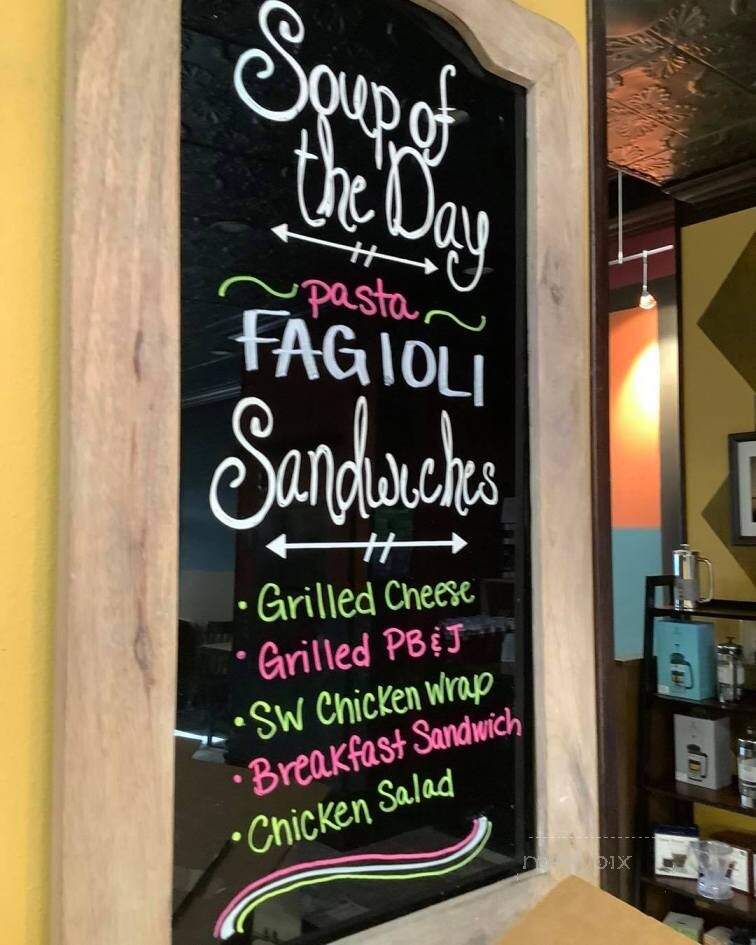 Soup of
the Day
pasta
FAGIOLI
Sandwiches
• Grilled Cheese
• Grilled PB & J
• SW Chicken Wrap
• Breakfast Sandwich
• Chicken Salad